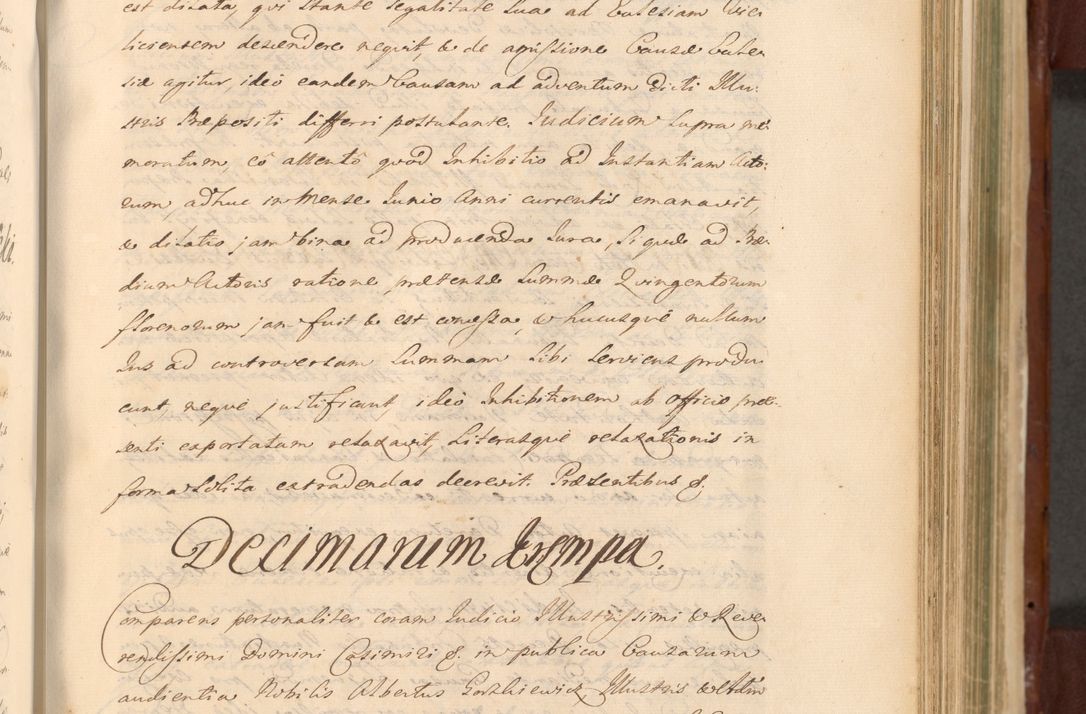 est dilata, qui stante legalitate sua ad Ecclesiam Wie-
liciensem descendere nequit, & de amissione Causæ Eccle-
siæ agitur, ideò eandem Causam ad adventum dicti Illu-
stris Præpositi differri postulante. Judicium supra me-
moratum, eô attentô quod Inhibitio ad Instantiam Acto-
rum, adhuc in Mense Junio Anni currentis emanavit,
& dilatio jam bina ad producenda Jura, si quæ ad Præ-
dium Actoris ratione prætensæ Summæ Quingentorum
florenorum jam fuit & est concessa, & hucusquè nullum
Jus ad controversam Summam sibi serviens produ-
cunt, nequè justificant, ideò Inhibitionem ab officio præ-
senti exportatam relaxavit, Literasquè relaxationis in
forma solita extradendas decrevit. Præsentibus &.
Decimarum Arempa.
Comparens personaliter coram Judicio Illustrissimi & Reve-
rendissimi Domini Casimiri &. in publica Causarum
audientia Nobilis Albertus Gorzkiewicz, Illustris & Adm